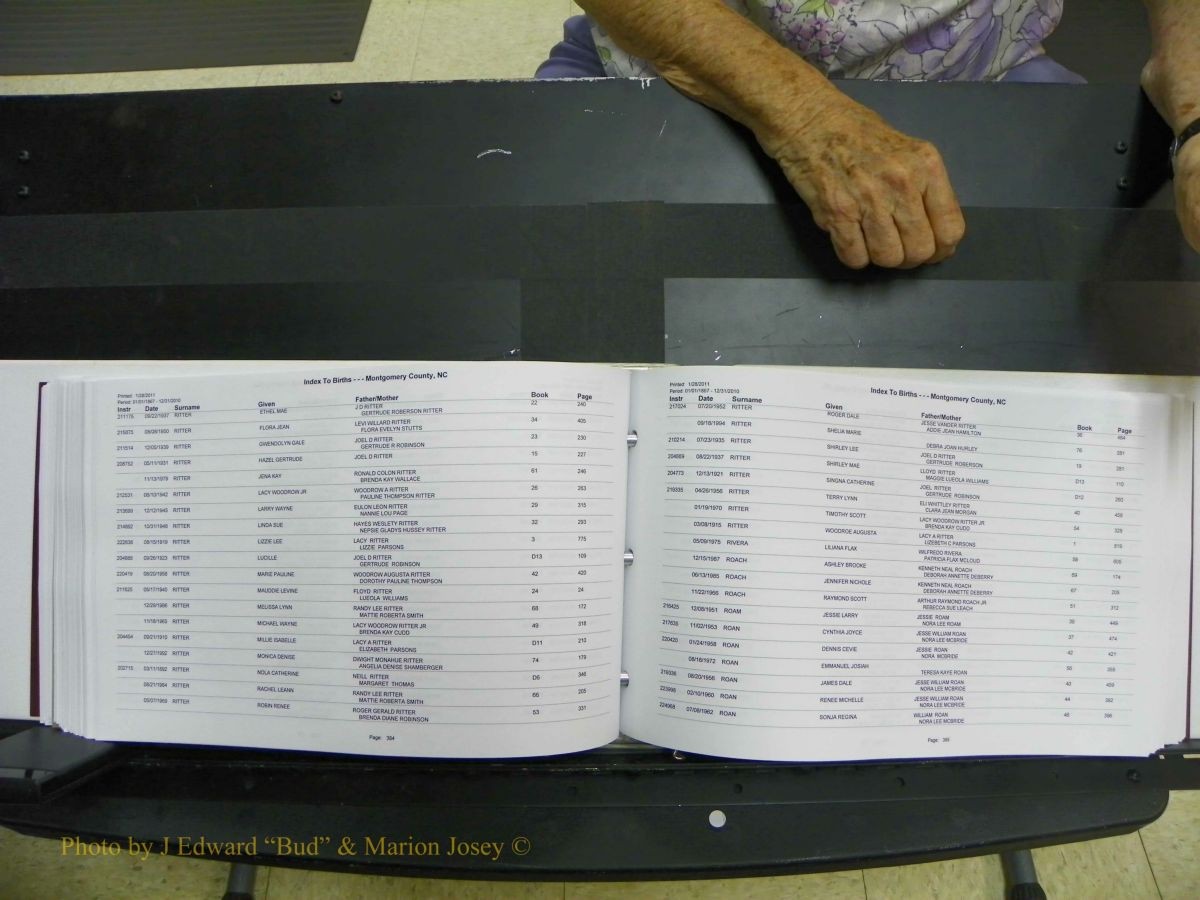 Index To Births - - - Montgomery County, NC
Printed: 1/28/2011
Period: 01/01/1867 - 12/31/2010
Instr Date Surname Given Father/Mother Book Page
211175 09/22/1937 RITTER ETHEL MAE J D RITTER 22 240
GERTRUDE ROBERSON RITTER
RITTER FLORA JEAN LEVI WILLARD RITTER 34 405
FLORA EVELYN STUTTS
211514 12/05/1939 RITTER GWENDOLYN GALE JOEL D RITTER 23 230
GERTRUDE R ROBINSON
208752 05/11/1931 RITTER HAZEL GERTRUDE JOEL D RITTER 15 227
11/13/1979 RITTER JENA KAY RONALD COLON RITTER 61 246
BRENDA KAY WALLACE
212531 08/10/1942 RITTER LACY WOODROW JR WOODROW A RITTER 26 263
PAULINE THOMPSON RITTER
213593 12/12/1945 RITTER LARRY WAYNE EULON LEON RITTER 29 315
NANNIE LOU PAGE
214892 10/31/1948 RITTER LINDA SUE HAYES WESLETY RITTER 32 293
NEPSIE GLADYS HUSSEY RITTER
222838 08/15/1919 RITTER LIZZIE LEE LACY RITTER 3 775
LIZZIE PARSONS
204888 09/26/1923 RITTER LUCILLE JOEL D RITTER D13 109
GERTRUDE ROBINSON
220419 08/20/1958 RITTER MARIE PAULINE WOODROW AUGUSTA RITTER 42 420
DOROTHY PAULINE THOMPSON
211625 05/17/1940 RITTER MAUDDIE LEVINE FLOYD RITTER 24 24
LUEOLA WILLIAMS
12/29/1986 RITTER MELISSA LYNN RANDY LEE RITTER 68 172
MATTIE ROBERTA SMITH
11/18/1965 RITTER MICHAEL WAYNE LACY WOODROW RITTER JR 49 318
BRENDA KAY CUDD
204454 09/21/1910 RITTER MILLIE ISABELLE LACY A RITTER D11 212
ELIZABETH PARSONS
12/27/1992 RITTER MONICA DENISE DWIGHT MONAHUE RITTER 74 179
ANGELIA DENISE SHAMBERGER
202715 03/11/1892 RITTER NOLA CATHERINE NEILL RITTER D6 346
MARGARET THOMAS
08/21/1984 RITTER RACHEL LEANN RANDY LEE RITTER 66 205
MATTIE ROBERTA SMITH
05/07/1969 RITTER ROBIN RENEE ROGER GERALD RITTER 53 331
BRENDA DIANE ROBINSON
Page: 384
Index To Births - - - Montgomery County, NC
Printed: 1/28/2011
Period: 01/01/1867 - 12/31/2010
Instr Date Surname Given Father/Mother Book Page
217024 07/20/1952 RITTER ROGER DALE JESSE VANDER RITTER 36 484
ADDIE JEAN HAMILTON
09/18/1994 RITTER SHELIA MARIE 76 281
DEBRA JOAN HURLEY
210214 07/23/1935 RITTER SHIRLEY LEE JOEL D RITTER 19 281
GERTRUDE ROBERSON
204889 08/22/1937 RITTER SHIRLEY MAE LLOYD RITTER D13 110
MAGGIE LUEOLA WILLIAMS
204773 12/13/1921 RITTER SINGNA CATHERINE JOEL RITTER D12 260
GERTRUDE ROBINSON
219335 04/26/1956 RITTER TERRY LYNN ELI WHITTLEY RITTER 40 458
CLARA JEAN MORGAN
01/19/1970 RITTER TIMOTHY SCOTT LACY WOODROW RITTER JR 54 328
BRENDA KAY CUDD
03/08/1915 RITTER WOODROE AUGUSTA LACY A RITTER 1 815
LIZEBETH C PARSONS
05/09/1975 RIVERA LILIANA FLAX WILFREDO RIVERA 59 605
PATRICIA FLAX MCLOUD
12/15/1987 ROACH ASHLEY BROOKE KENNETH NEAL ROACH 69 174
DEBORAH ANNETTE DEBERRY
06/13/1985 ROACH JENNIFER NICHOLE KENNETH NEAL ROACH 67 205
DEBORAH ANNETTE DEBERRY
11/22/1966 ROACH RAYMOND SCOTT ARTHUR RAYMOND ROACH JR 51 312
REBECCA SUE LEACH
216425 12/08/1951 ROAM JESSIE LARRY JESSIE ROAM 35 449
NORA LEE ROAM
217635 11/02/1953 ROAN CYNTHIA JOYCE JESSE WILLIAM ROAN 37 474
NORA LEE MCBRIDE
220420 01/24/1958 ROAN DENNIS CEVIE JESSIE ROAN 42 421
NORA MCBRIDE
08/18/1972 ROAN EMMANUEL JOSIAH 56 359
TERESA KAYE ROAN
219336 08/20/1956 ROAN JAMES DALE JESSE WILLIAM ROAN 40 459
NORA LEE MCBRIDE
223998 02/10/1960 ROAN RENEE MICHELLE JESSE WILLIAM ROAN 44 392
NORA LEE MCBRIDE
224968 07/08/1962 ROAN SONJA REGINA WILLIAM ROAN 46 396
NORA LEE MCBRIDE
Page: 385
Photo by J Edward “Bud” & Marion Josey ©